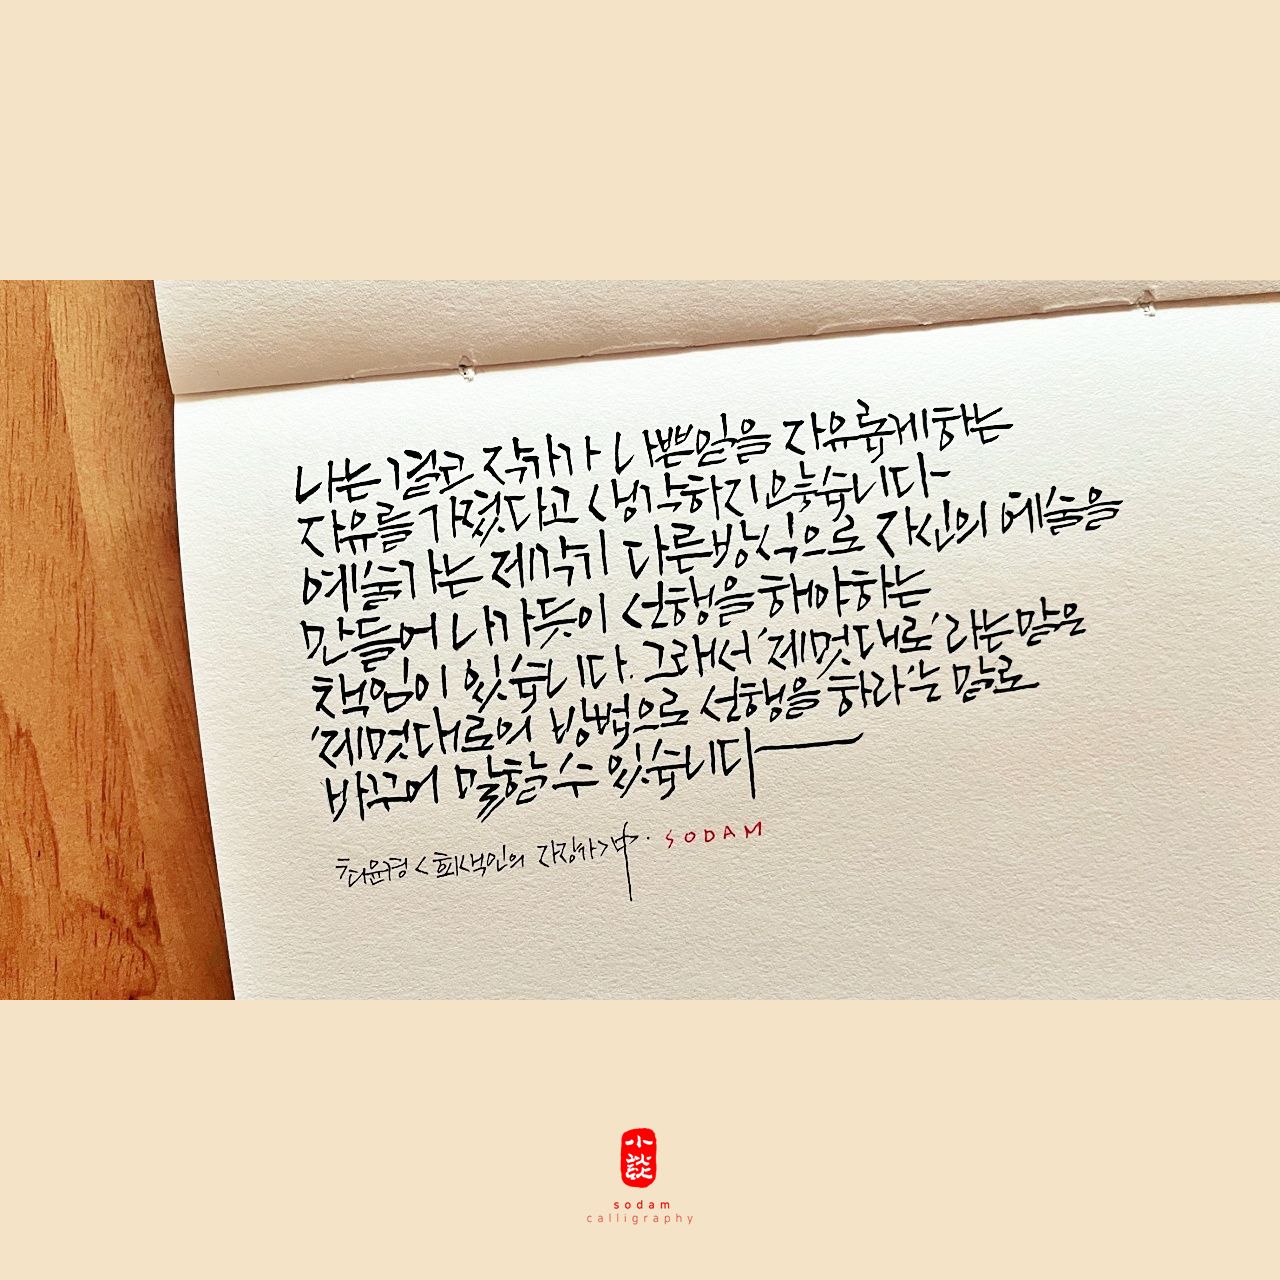 나는 결코 작가가 나쁜일을 자유롭게하는
자유를 가졌다고 생각하지않습니다-
예술가는 제각기 다른방식으로 자신의 예술을
만들어 나가듯이 선행을 해야하는
책임이 있습니다. 그래서 '제멋대로' 라는말은
'제멋대로의 방법으로 선행을 하라'는 말로
바꾸어 말할 수 있습니다
최윤경 <회색인의 자장가> 中. SODAM
小談
sodam
calligraphy